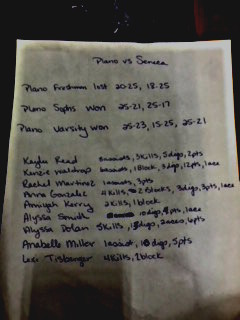 Plano vs Seneca
Plano Freshman lost 20-25, 18-25
Plano Sophs Won 25-21, 25-17
Plano Varsity Won 25-23, 15-25, 25-21
Kaylu Reed assists, 3 Kills, 5 digs, 2pts
Kenzie Waldrop assists, 1 block, 3 digs, 12pts, 1 ace
Rachel Martinez 1 assist, 3pts
Gonzalez 4 Kills, 2 Blocks, 3 digs, 3pts, 1 ace
Amiyah Kerry 2 Kills, 1 block
Alyssa Smith 10 digs, 1 ace
Alyssa Dolan 5 Kills, digs, 2 aces, 6pts
Anabelle Miller 1 assist, digs, 5pts
Lexi 4 Kills, 2 block